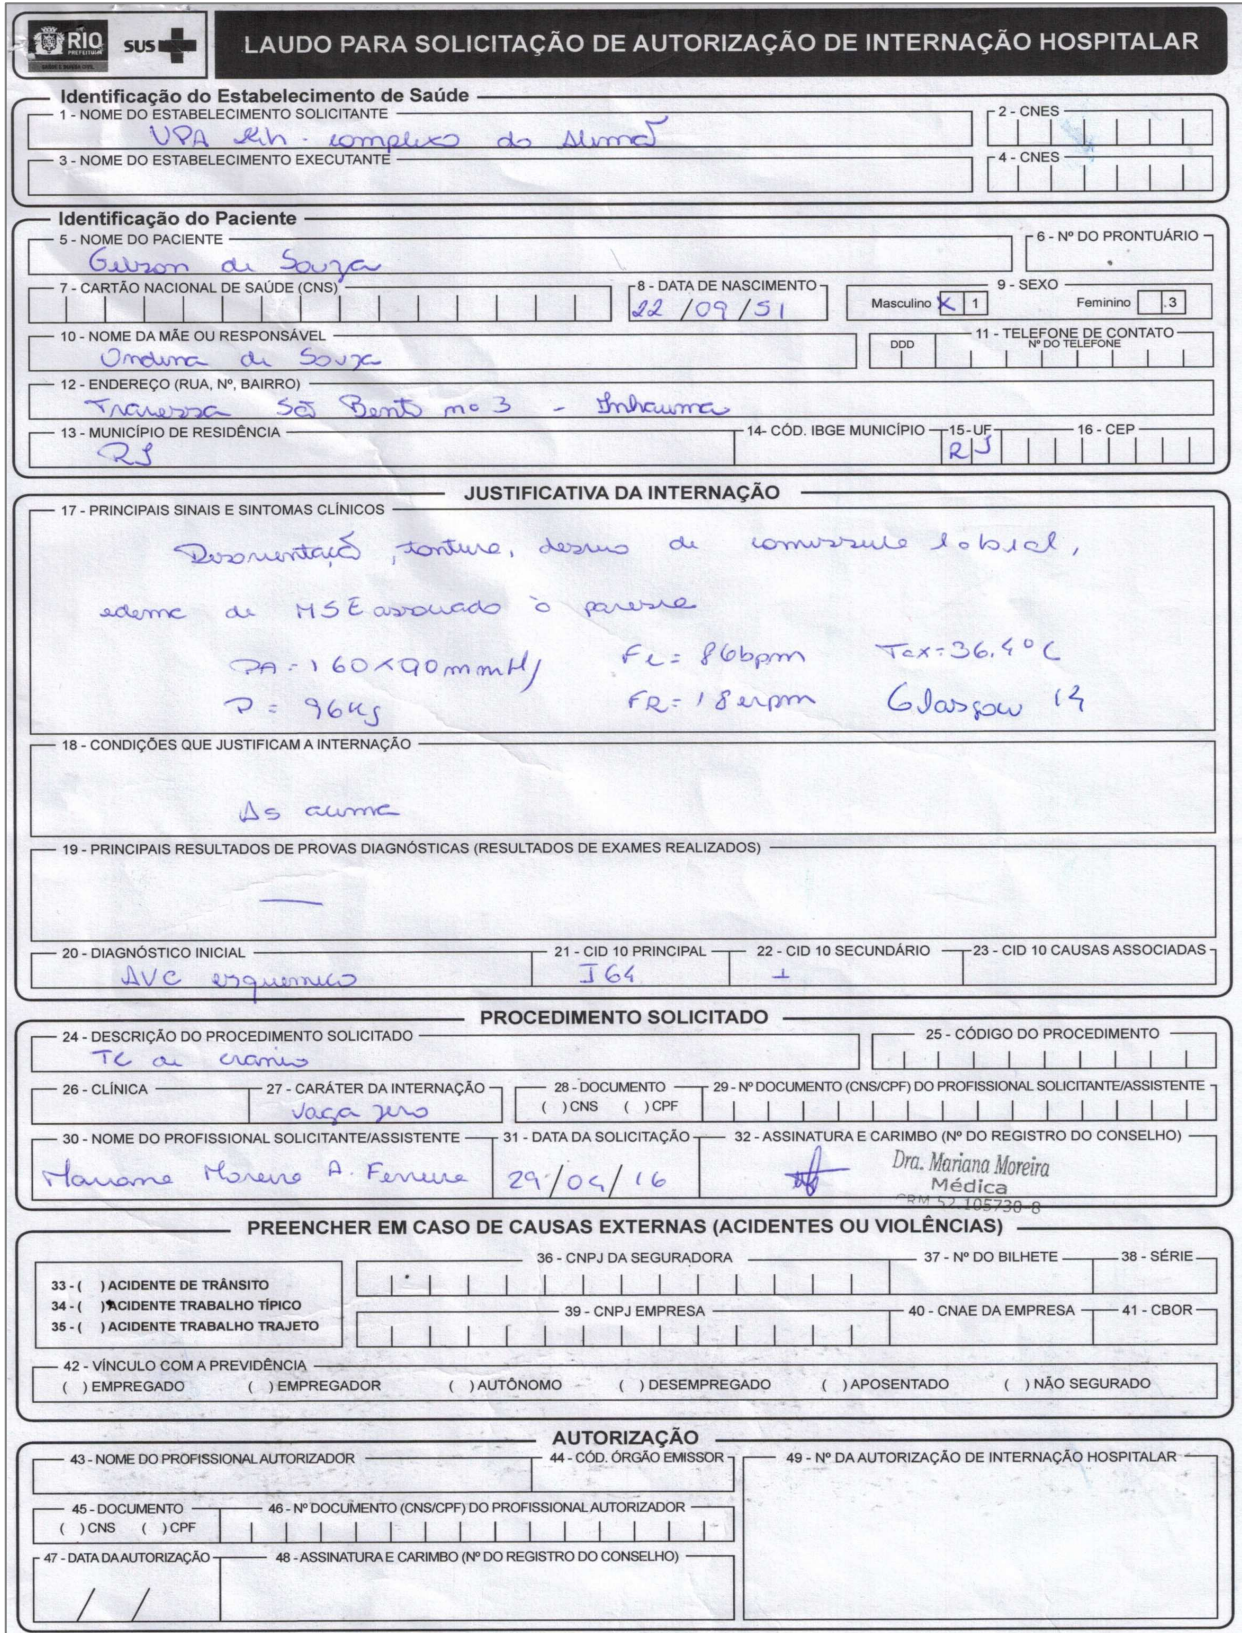 RIO
PREFEITURA
SAÚDE E DEFESA CIVIL
SUS
LAUDO PARA SOLICITAÇÃO DE AUTORIZAÇÃO DE INTERNAÇÃO HOSPITALAR
Identificação do Estabelecimento de Saúde
1 - NOME DO ESTABELECIMENTO SOLICITANTE
2 - CNES
UPA 24h - complexo do Alemão
3 - NOME DO ESTABELECIMENTO EXECUTANTE
4 - CNES
Identificação do Paciente
5 - NOME DO PACIENTE
6 - Nº DO PRONTUÁRIO
de Souza
7 - CARTÃO NACIONAL DE SAÚDE (CNS)
8 - DATA DE NASCIMENTO
9 - SEXO
22 / 09 / 51
Masculino X 1
Feminino 3
10 - NOME DA MÃE OU RESPONSÁVEL
11 - TELEFONE DE CONTATO
DDD
Nº DO TELEFONE
Ondina de Souza
12 - ENDEREÇO (RUA, Nº, BAIRRO)
Travessa São Bento nº 3 - Inhauma
13 - MUNICÍPIO DE RESIDÊNCIA
14- CÓD. IBGE MUNICÍPIO
15 - UF
16 - CEP
RJ
RJ
JUSTIFICATIVA DA INTERNAÇÃO
17 - PRINCIPAIS SINAIS E SINTOMAS CLÍNICOS
Desorientação, tontura, desvio de comissura labial,
edema de MSE associado à paresia
PA = 160x90mmHg FC = 86bpm Tax = 36.4°C
P = 96Kg FR = 18 irpm Glasgow 14
18 - CONDIÇÕES QUE JUSTIFICAM A INTERNAÇÃO
As acima
19 - PRINCIPAIS RESULTADOS DE PROVAS DIAGNÓSTICAS (RESULTADOS DE EXAMES REALIZADOS)
20 - DIAGNÓSTICO INICIAL
21 - CID 10 PRINCIPAL
22 - CID 10 SECUNDÁRIO
23 - CID 10 CAUSAS ASSOCIADAS
AVC isquemico
I64
PROCEDIMENTO SOLICITADO
24 - DESCRIÇÃO DO PROCEDIMENTO SOLICITADO
25 - CÓDIGO DO PROCEDIMENTO
TC de cranio
26 - CLÍNICA
27 - CARÁTER DA INTERNAÇÃO
28 - DOCUMENTO
29 - Nº DOCUMENTO (CNS/CPF) DO PROFISSIONAL SOLICITANTE/ASSISTENTE
Vaga zero
( ) CNS ( ) CPF
30 - NOME DO PROFISSIONAL SOLICITANTE/ASSISTENTE
31 - DATA DA SOLICITAÇÃO
32 - ASSINATURA E CARIMBO (Nº DO REGISTRO DO CONSELHO)
Mariana Moreira A. Ferreira
29 / 04 / 16
Dra. Mariana Moreira
Médica
CRM 52.105730-8
PREENCHER EM CASO DE CAUSAS EXTERNAS (ACIDENTES OU VIOLÊNCIAS)
33 - ( ) ACIDENTE DE TRÂNSITO
34 - ( ) ACIDENTE TRABALHO TÍPICO
35 - ( ) ACIDENTE TRABALHO TRAJETO
36 - CNPJ DA SEGURADORA
37 - Nº DO BILHETE
38 - SÉRIE
39 - CNPJ EMPRESA
40 - CNAE DA EMPRESA
41 - CBOR
42 - VÍNCULO COM A PREVIDÊNCIA
( ) EMPREGADO ( ) EMPREGADOR ( ) AUTÔNOMO ( ) DESEMPREGADO ( ) APOSENTADO ( ) NÃO SEGURADO
AUTORIZAÇÃO
43 - NOME DO PROFISSIONAL AUTORIZADOR
44 - CÓD. ÓRGÃO EMISSOR
49 - Nº DA AUTORIZAÇÃO DE INTERNAÇÃO HOSPITALAR
45 - DOCUMENTO
46 - Nº DOCUMENTO (CNS/CPF) DO PROFISSIONAL AUTORIZADOR
( ) CNS ( ) CPF
47 - DATA DA AUTORIZAÇÃO
48 - ASSINATURA E CARIMBO (Nº DO REGISTRO DO CONSELHO)
/ /